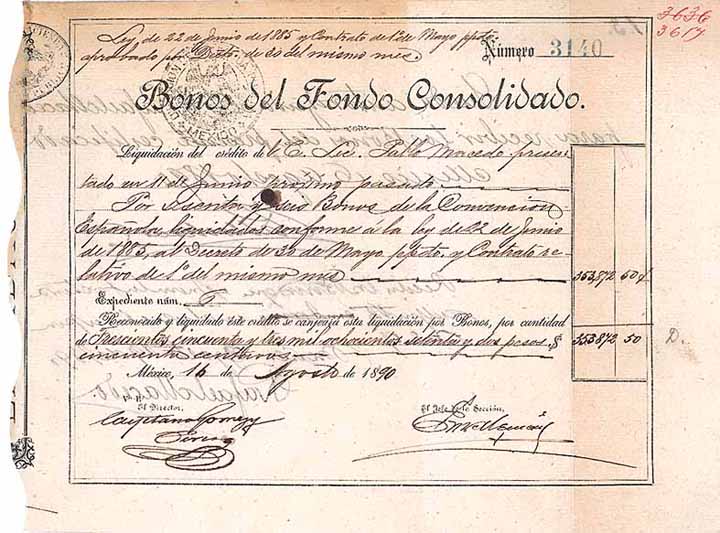 Ley de 22 de Junio de 1885 y Contrato de 1º de Mayo ppdo.
aprobado por Decto. de 30 del mismo mes.
Número 3140
3636
3617
MEXICO
Bonos del Fondo Consolidado.
Liquidación del crédito de l E. Lic. Pablo Macedo presen-
tado en 11 de Junio próximo pasado
Por sesenta y seis Bonos de la Convención
Española, liquidados conforme á la ley de 22 de Junio
de 1885, al Decreto de 30 de Mayo ppdo. y Contrato re-
lativo de 1º del mismo mes 353,872 50
Expediente núm.
Reconocido y liquidado éste crédito se canjeará esta liquidación por Bonos, por cantidad
de Trescientos cincuenta y tres mil ochocientos setenta y dos pesos $ 353872 50 D.
cincuenta centavos.
México, 16 de Agosto de 1890
El Director, El Jefe de la Sección,
Cayetano Gomez